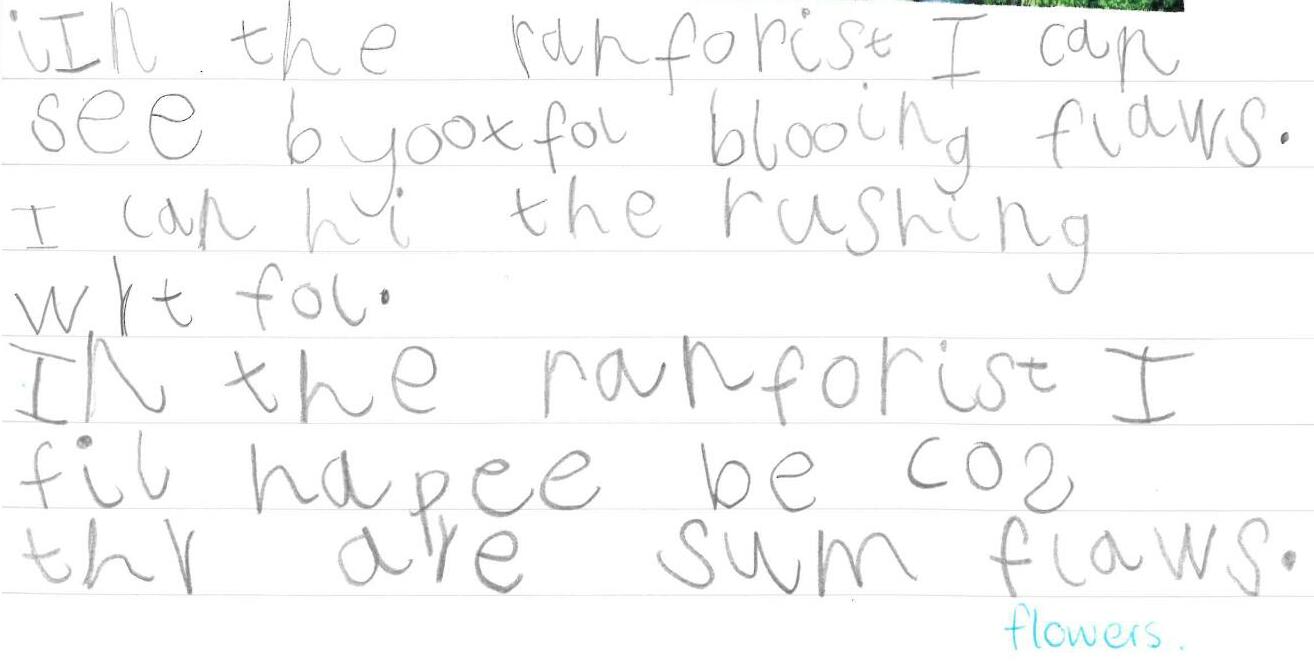 iIn the ranforist I can
see byootfol blooing flaws.
I can hi the rushing
wrt fol.
In the ranforist I
fil hapee be coz
thr are sum flaws.
flowers.